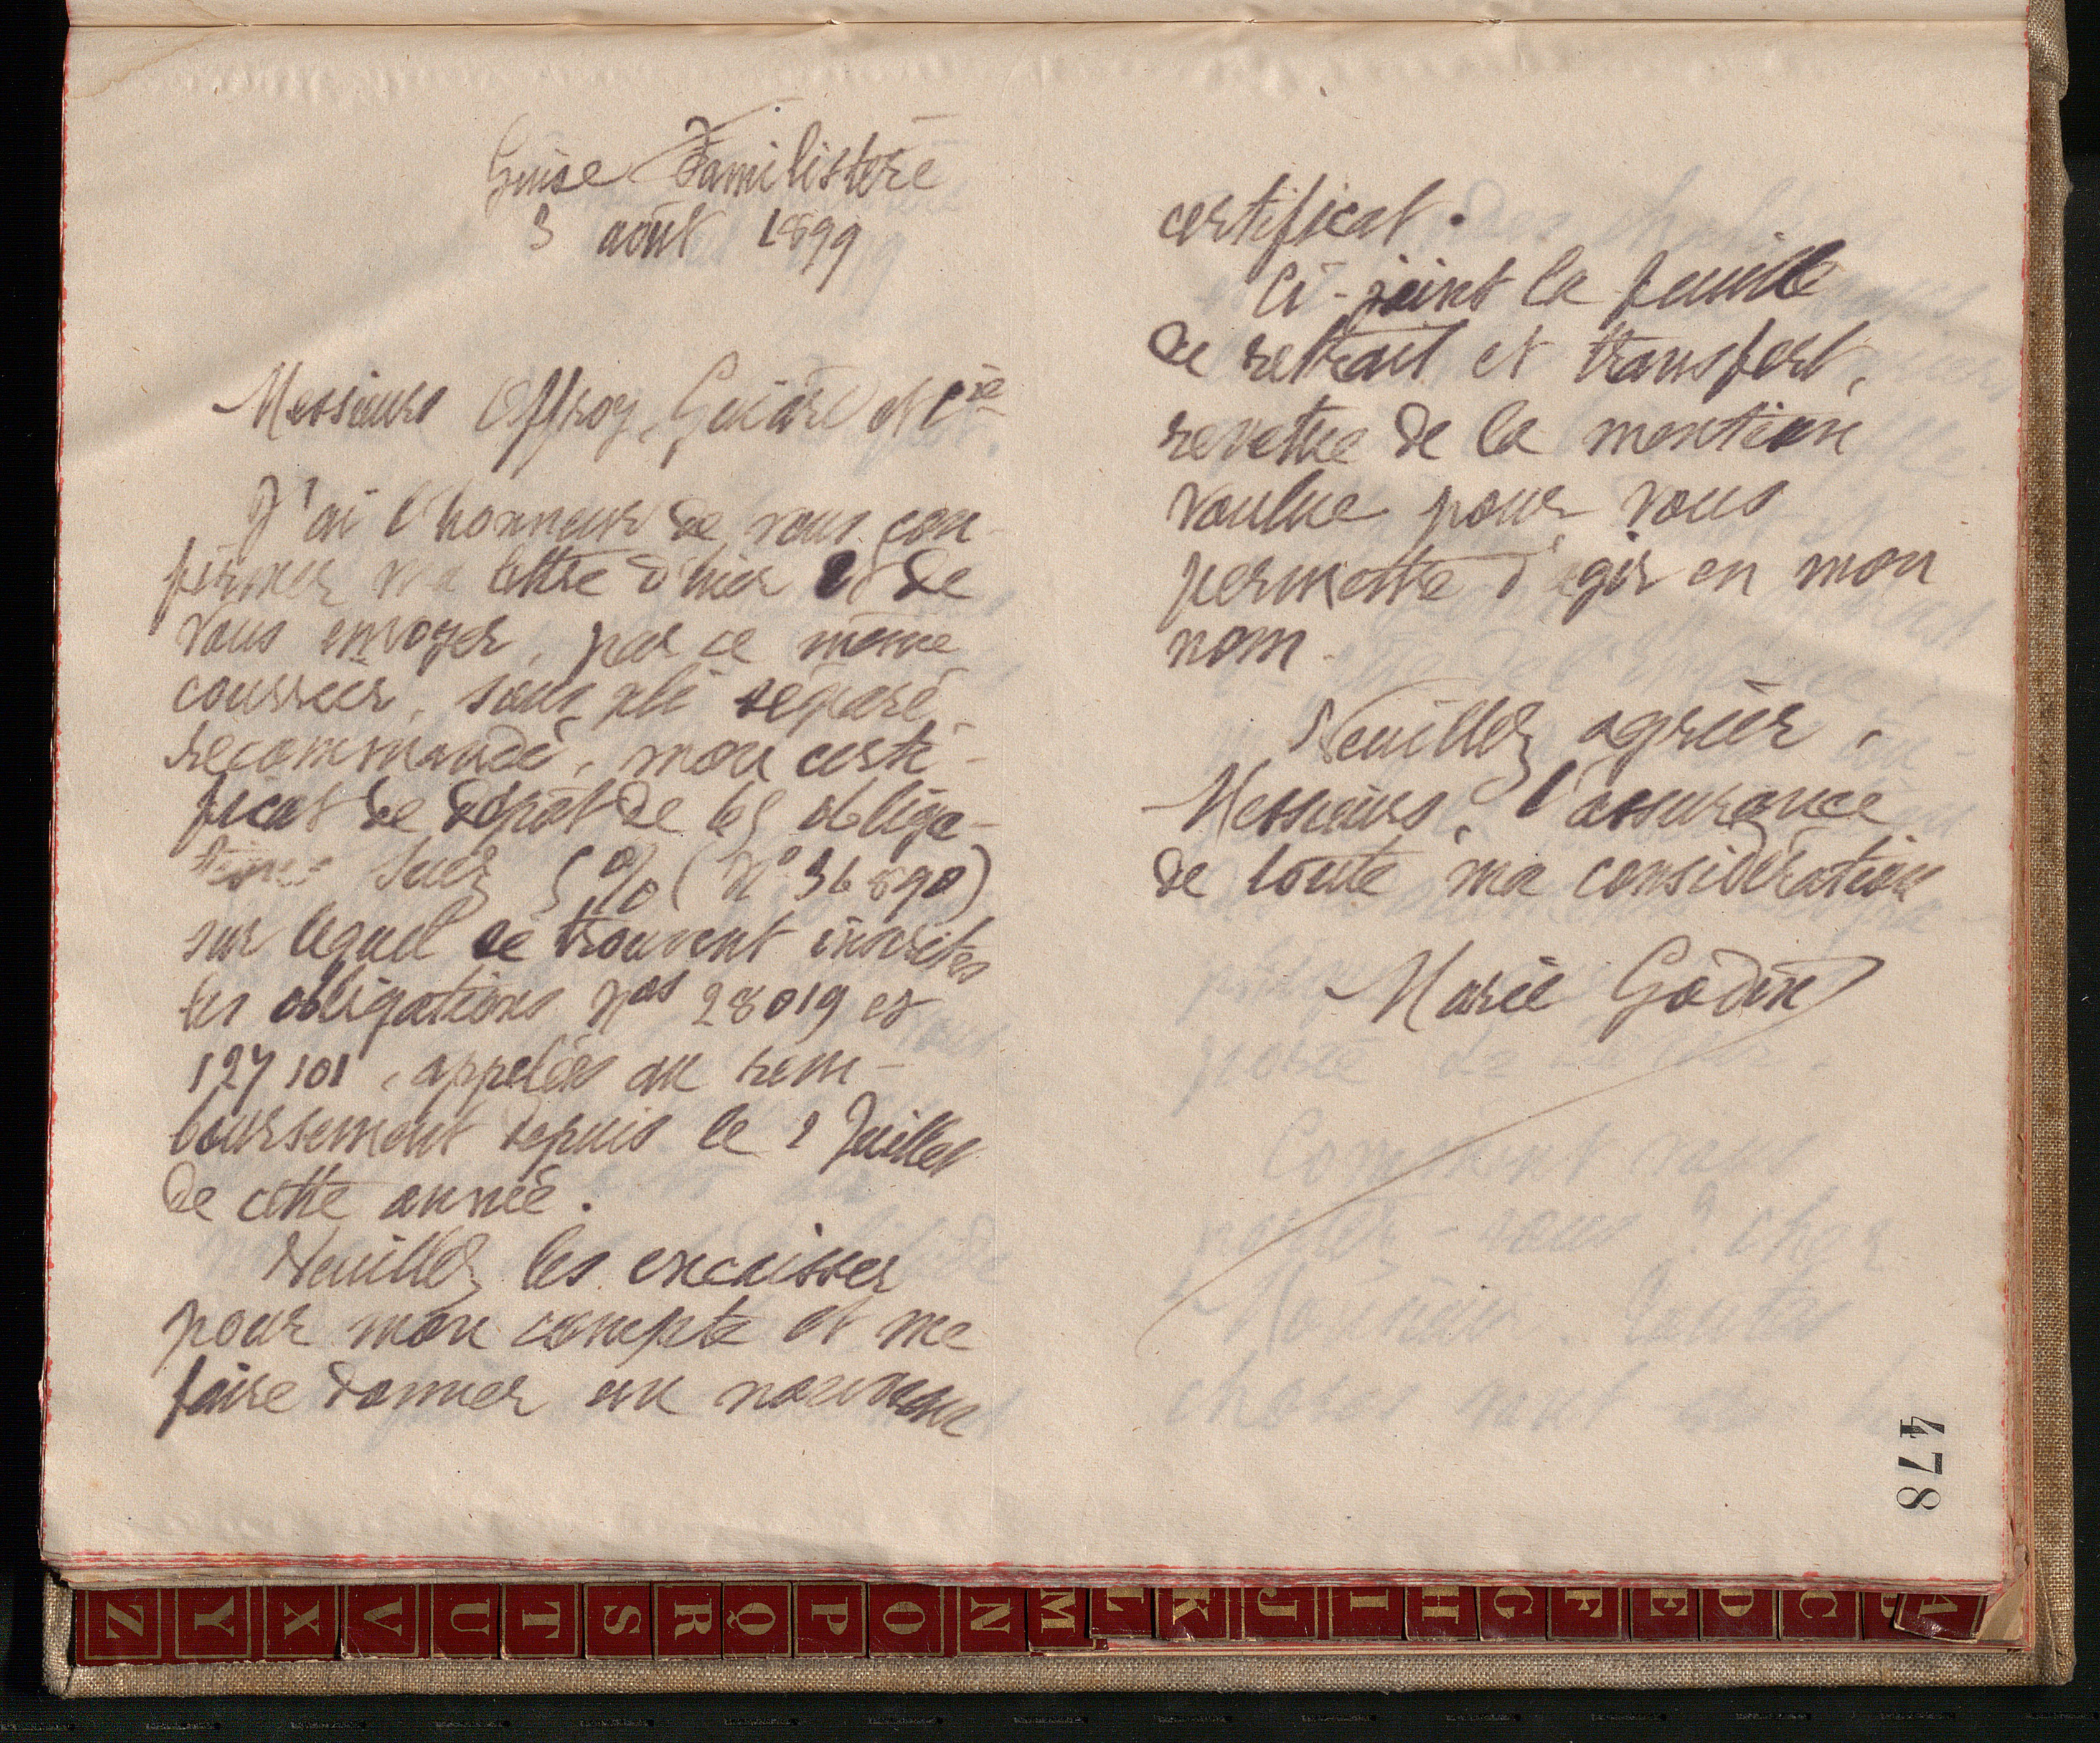 Guise Familistère
3 août 1899
Messieurs Offroy, Guiard et Cie
J'ai l'honneur de vous con-
firmer ma lettre d'hier et de
vous envoyer, par ce même
courrier, sous pli séparé,
recommandé, mon certi-
ficat de dépôt de 65 obliga-
tions Suez 5% (N° 36890)
sur lequel se trouvent inscrites
les obligations Nos 28019 et
127101, appelées au rem-
boursement depuis le 1 Juillet
de cette année.
Veuillez les encaisser
pour mon compte et me
faire donner un nouveau
certificat.
Ci-joint la feuille
de retrait et transfert,
revêtue de la mention
voulue pour vous
permettre d'agir en mon
nom.
Veuillez agréer,
Messieurs, l'assurance
de toute ma considération
Marie Godin
478
Z Y X V U T S R Q P O N M L K J I H G F E D C B A